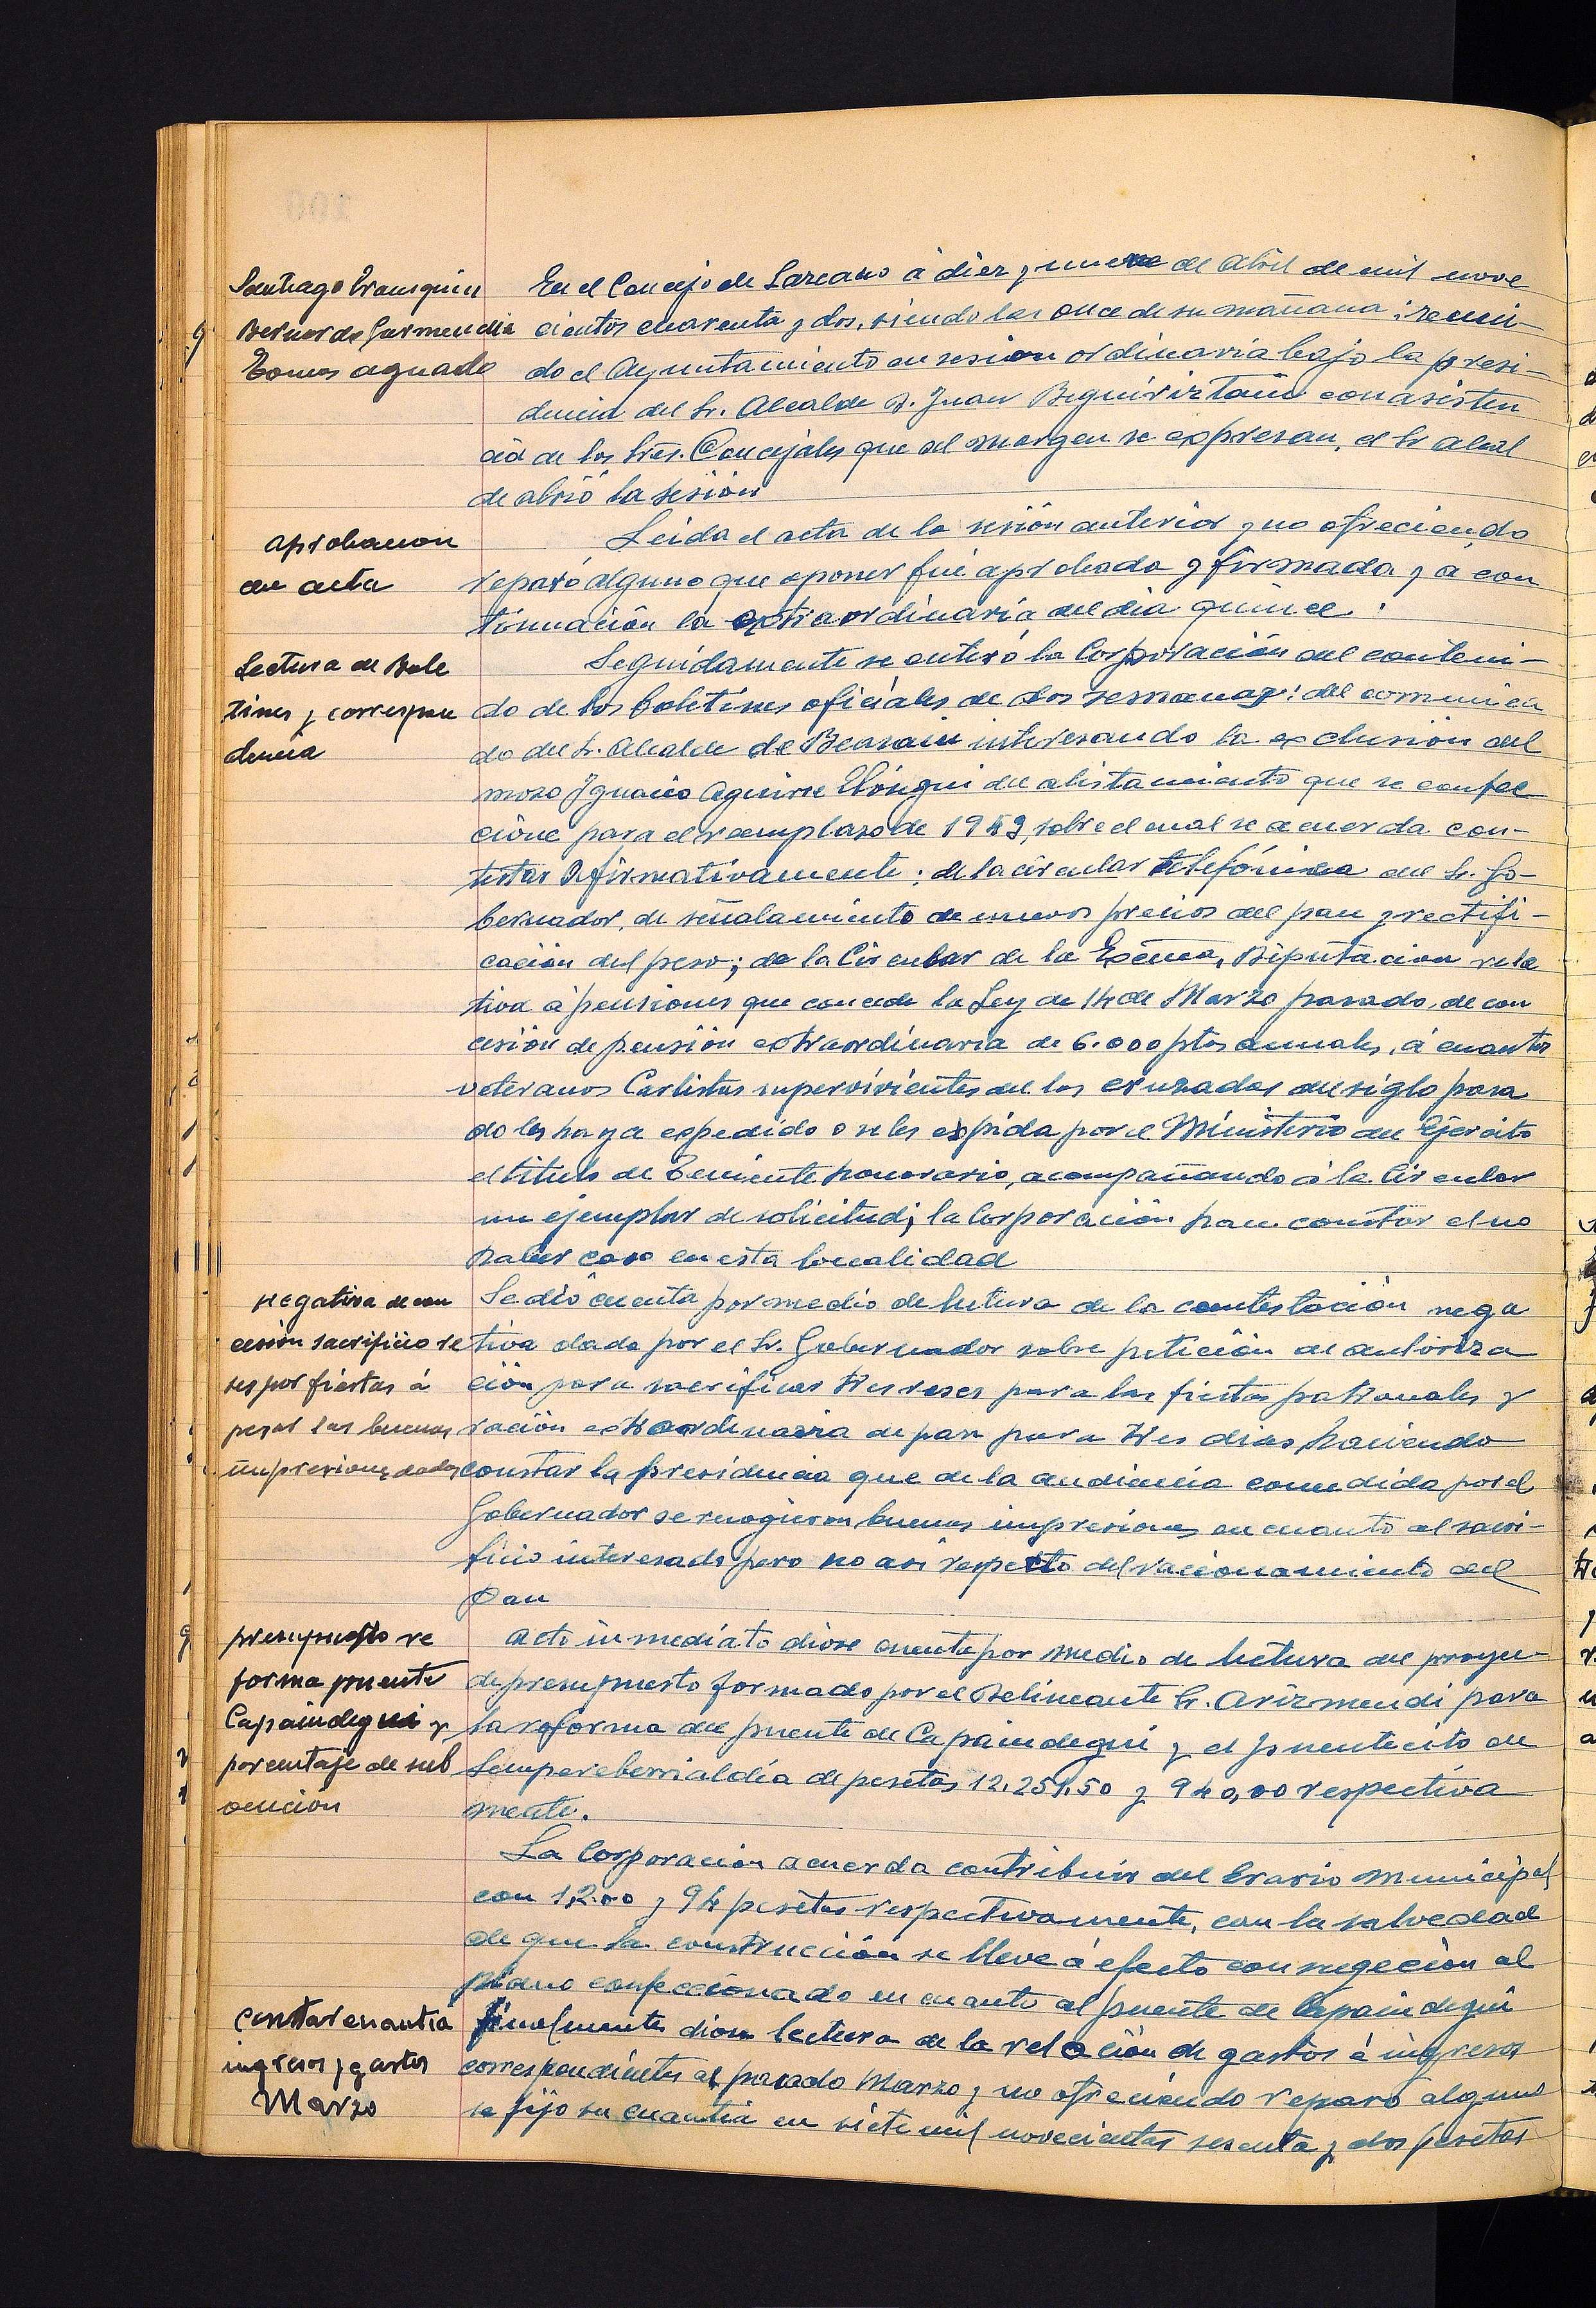 Santiago Iranquin
Bernardo Garmendia
Tomas aguado
En el Concejo de Lazcano á diez y nueve de Abril de mil nove
cientos cuarenta y dos, siendo las once de su mañana: reuni-
do el Ayuntamiento en sesion ordinaria bajo la presi-
dencia del Sr. Alcalde D. Juan Beguiriztain con asisten
cia de los Sres. Concejales que al margen se expresan, el Sr alcal
de abrió la sesión
aprobacion
de acta
Leida el acta de la sesión anterior y no ofreciendo
reparo alguno que oponer fué aprobada y firmada y á con
tinuación la extraordinaria del dia quince.
Lectura de Bole
tines y correspon
dencia
Seguidamente se enteró la Corporación del conteni-
do de los boletines oficiales de dos semanas: del comunica
do del Sr. Alcalde de Beasain interesando la exclusión del
mozo Ignacio Aguirre del alistamiento que se confec
cione para el reemplazo de 1943, sobre el cual se acuerda con-
testar Afirmativamente; de la circular telefónica del Sr. Go-
bernador, de señalamiento de nuevos precios del pan y rectifi-
cación del peso; de la Circular de la Excma, Diputacion rela
tiva á pensiones que concede la Ley de 14 de Marzo pasado, de con
cesión de pensión extraordinaria de 6.000 ptas anuales, á cuantos
veteranos Carlistas supervivientes de las cruzadas del siglo pasa
do les haya expedido o se les expida por el Ministerio del Ejército
el titulo de Teniente honorario, acompañando á la Circular
un ejemplar de solicitud; la Corporación hace constar el no
haber caso en esta localidad
Negativa de con
cesión sacrificio re
ses por fiestas á
pesar las buenas
impresiones dadas
Se dió cuenta por medio de lectura de la contestación nega
tiva dada por el Sr. Gobernador sobre petición de autoriza
ción para sacrificar tres reses para las fiestas patronales y
ración extraordinaria de pan para tres dias haciendo
constar la presidencia que de la audiencia concedida por el
Gobernador se recogieron buenas impresiones en cuanto al sacri-
ficio interesado pero no asi respecto del racionamiento del
Pan
presupuesto re
forma puente
Capaindegui y
porcentaje de sub
vención
Acto inmediato diose cuenta por medio de lectura del proyec-
de presupuesto formado por el Delineante Sr. Arizmendi para
la reforma del puente de Capaindegui y el puentecito de
Sempereberrialdia de pesetas 12.251,50 y 940,00 respectiva
mente.
La Corporación acuerda contribuir del Erario Municipal
con 1,200 y 94 pesetas respectivamente, con la salvedad
de que la construcción se lleve á efecto con sugeción al
plano confeccionado en cuanto al puente de Capaindegui
Contar cuantia
ingresos y gastos
Marzo
finalmente diose lectura de la relación de gastos é ingresos
correspondientes al pasado Marzo y no ofreciendo reparo alguno
se fijo su cuantia en siete mil novecientas sesenta y dos pesetas